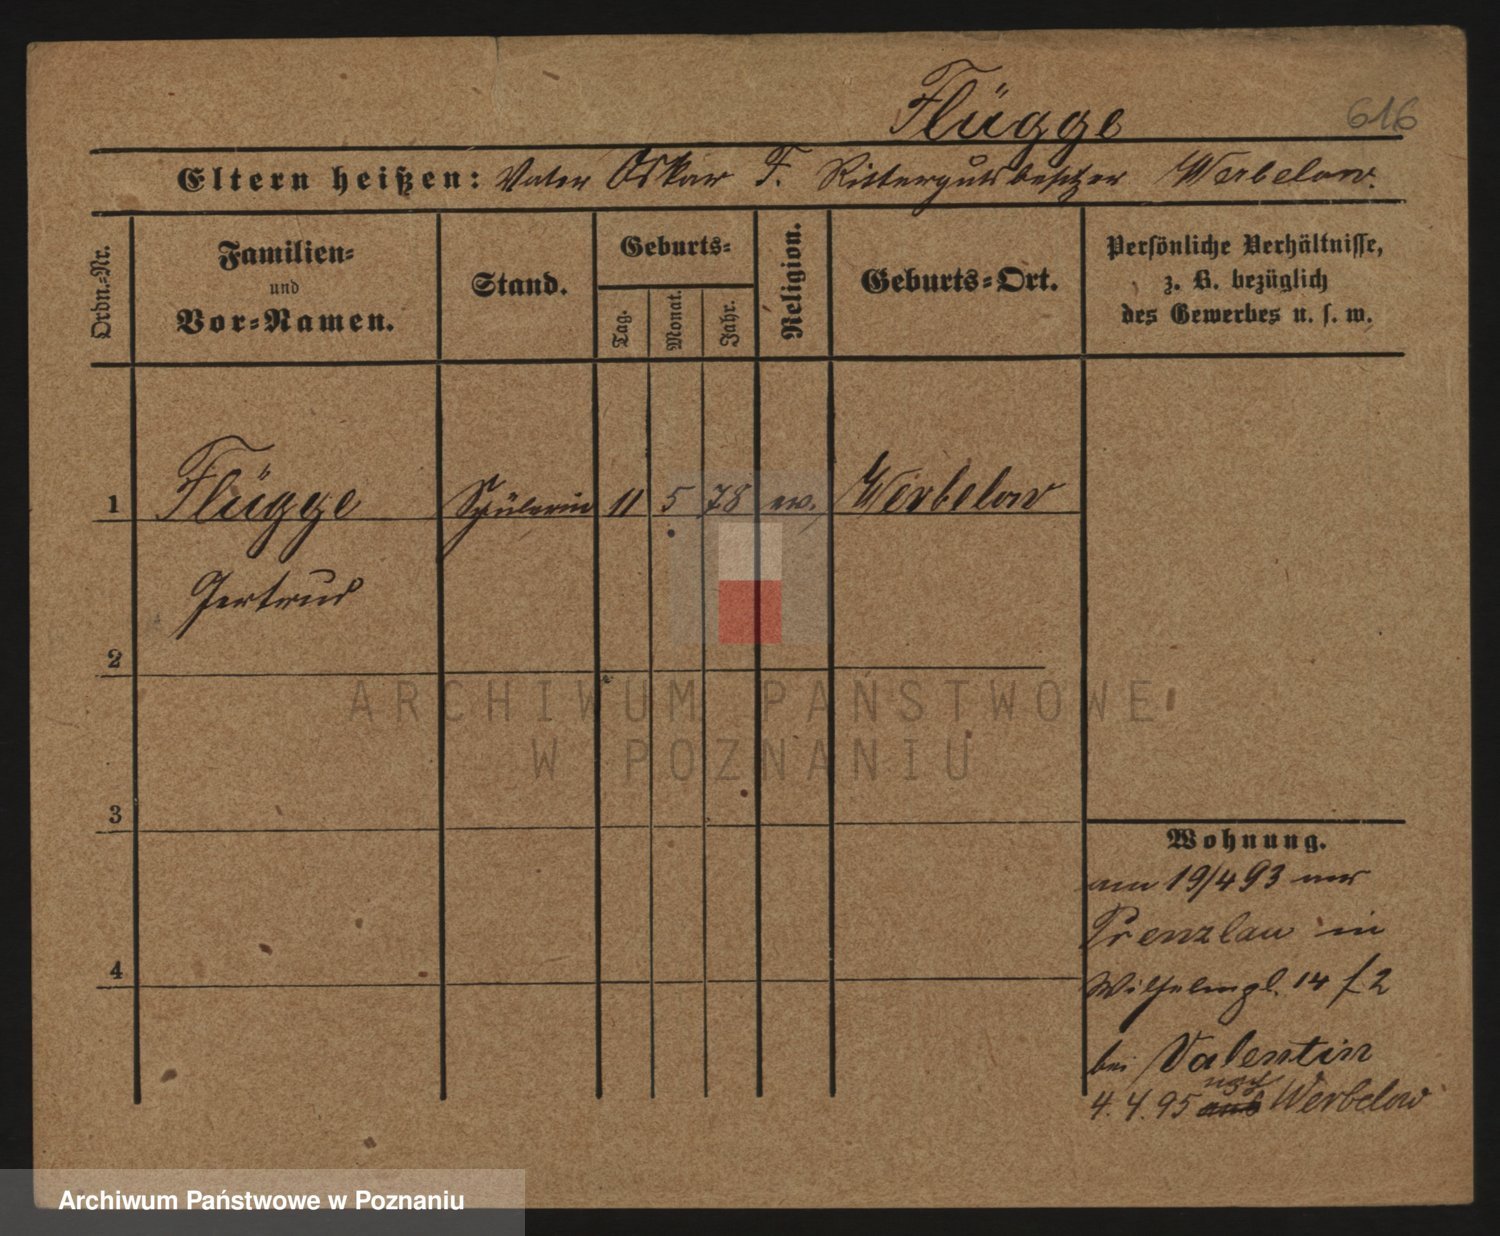 Flügge 616
Eltern heißen: Vater Oskar F. Rittergutsbesitzer Werbelow.
Ordn.-Nr.
Familien-
und
Vor-Namen.
Stand.
Geburts-
Tag.
Monat.
Jahr.
Religion.
Geburts-Ort.
Persönliche Verhältnisse,
z. B. bezüglich
des Gewerbes u. s. w.
1 Flügge Schülerin 11 5 78 ev. Werbelow
Gertrud
2
3
4
ARCHIWUM PAŃSTWOWE
W POZNANIU
Wohnung.
am 19/4 93 aus
Prenzlau in
Wilhelmpl. 14 f. 2
bei Valentin
nach
4.4.95 aus Werbelow
Archiwum Państwowe w Poznaniu